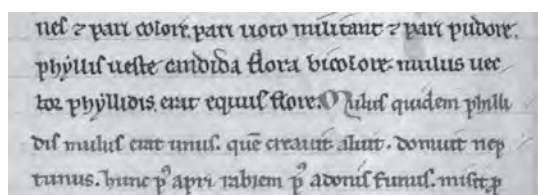 nes ⁊ pari colore. pari uoto militant ⁊ pari pudore.
phyllis ueste candida flora bicolore. mulus uec
tor phyllidis. erat equus flore. Mulus quidem philli
dis mulus erat unus. quē creauit aluit. domuit nep
tunus. hunc pꝰ apri rabiem pꝰ adonis funus. misit ꝑ